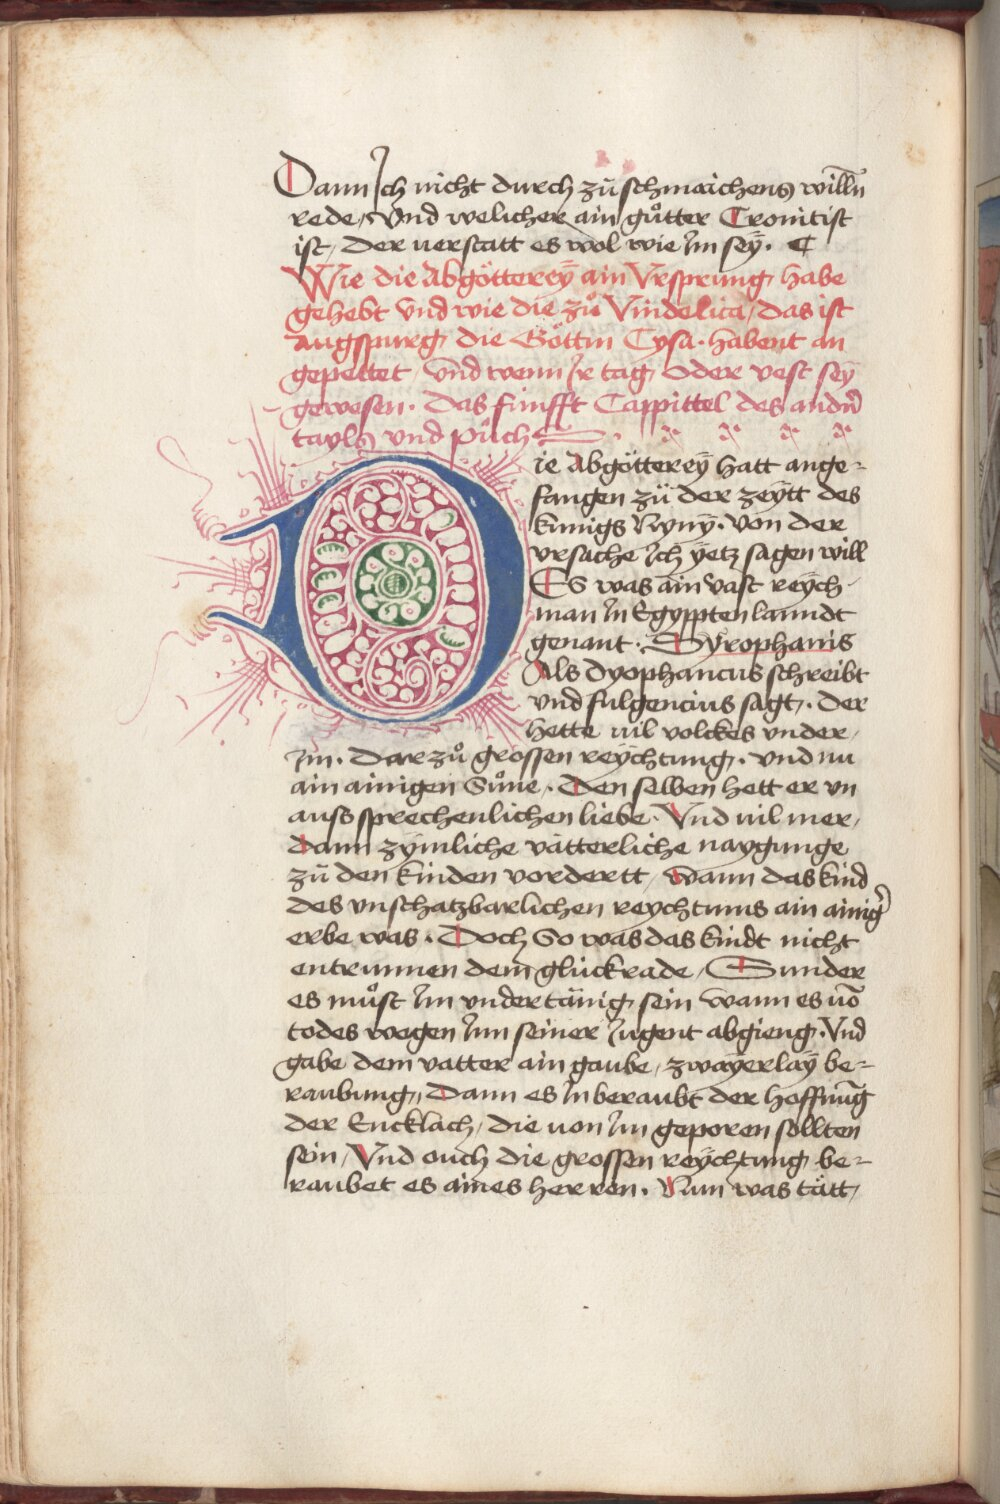 Dann Ich nicht durch zů schmaichens willn̄
rede, Vnd welicher ain gůtter Cronitist
ist, der verstatt es wol wie Im seÿ. ¶
Wie die Abgötterey̋ ain Vrsprung habe
gehebt vnd wie die zů Vindelica, das ist
Augspurg, die Göttin Cysa. habent an
gepettet, vnd wenn Ir tag, oder vest seÿ
gewesen. Das fünfft Cappittel des andn̄
tayls vnd půchs.
Die Abgötterey̋ hatt ange-
fangen zů der zeÿtt des
künigs Nynÿ. von der
vrsache Ich ÿetz sagen will
Es was ain vast reÿch
man In Egypptenlanndt
genant. Syrophanis
Als dyophancus schreibt
vnd fulgencius sagt. der
hette vil volckes vnder
Im. dar zů grossen reÿchtung. vnd nu
ain ainigen Sůne. Den selben hett er vn
auss sprechenlichen liebe. Vnd vil mer,
dann zÿmliche vätterliche naygunge
zů den kinden vordertt, wann das kind
des vnschatzbarlichen reychtums ain ainig̉
erbe was. Doch So was das kindt nicht
entrunnen dem glückrade, Sunder
es můst Im vndertänig sein wann es vō
todes wegen Inn seiner Jugent abgieng. Vnd
gabe dem vatter ain gaube, zwaÿerlaÿ be-
raubung, Dann es In beraubt der hoffnūg
der Encklach, die von Im geporen sollten
sein, Vnd ouch die grossen reÿchtung be-
raubet es aines herren. Nun was tätt,